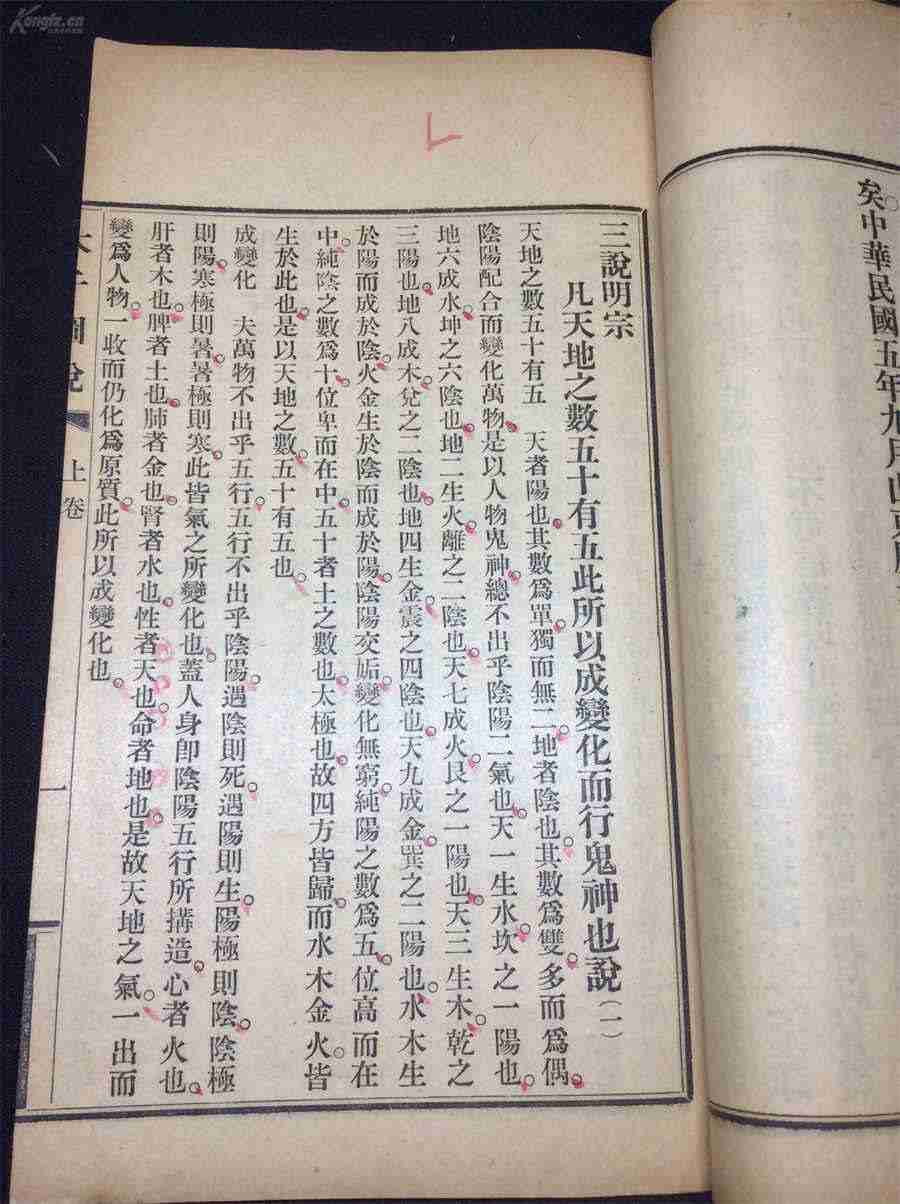 Kongfz.cn
矣中華民國五年九月山東
三說明宗
凡天地之數五十有五此所以成變化而行鬼神也說(一)
天地之數五十有五　天者陽也。其數爲單獨而無二。地者陰也。其數爲雙。多而爲偶。
陰陽配合而變化萬物。是以人物鬼神。總不出乎陰陽二氣也。天一生水。坎之一陽也。
地六成水。坤之六陰也。地二生火。離之二陰也。天七成火。艮之一陽也。天三生木。乾之
三陽也。地八成木。兌之二陰也。地四生金。震之四陰也。天九成金。巽之二陽也。水木生
於陽而成於陰。火金生於陰而成於陽。陰陽交姤。變化無窮。純陽之數爲五。位高而在
中。純陰之數爲十。位卑而在中。五十者土之數也。太極也。故四方皆歸。而水木金火。皆
生於此也。是以天地之數。五十有五也。
成變化　夫萬物不出乎五行。五行不出乎陰陽。遇陰則死。遇陽則生。陽極則陰。陰極
則陽。寒極則暑。暑極則寒。此皆氣之所變化也。蓋人身卽陰陽五行所搆造。心者火也。
肝者木也。脾者土也。肺者金也。腎者水也。性者天也。命者地也。是故天地之氣。一出而
變爲人物。一收而仍化爲原質。此所以成變化也。
圖說
上卷
一